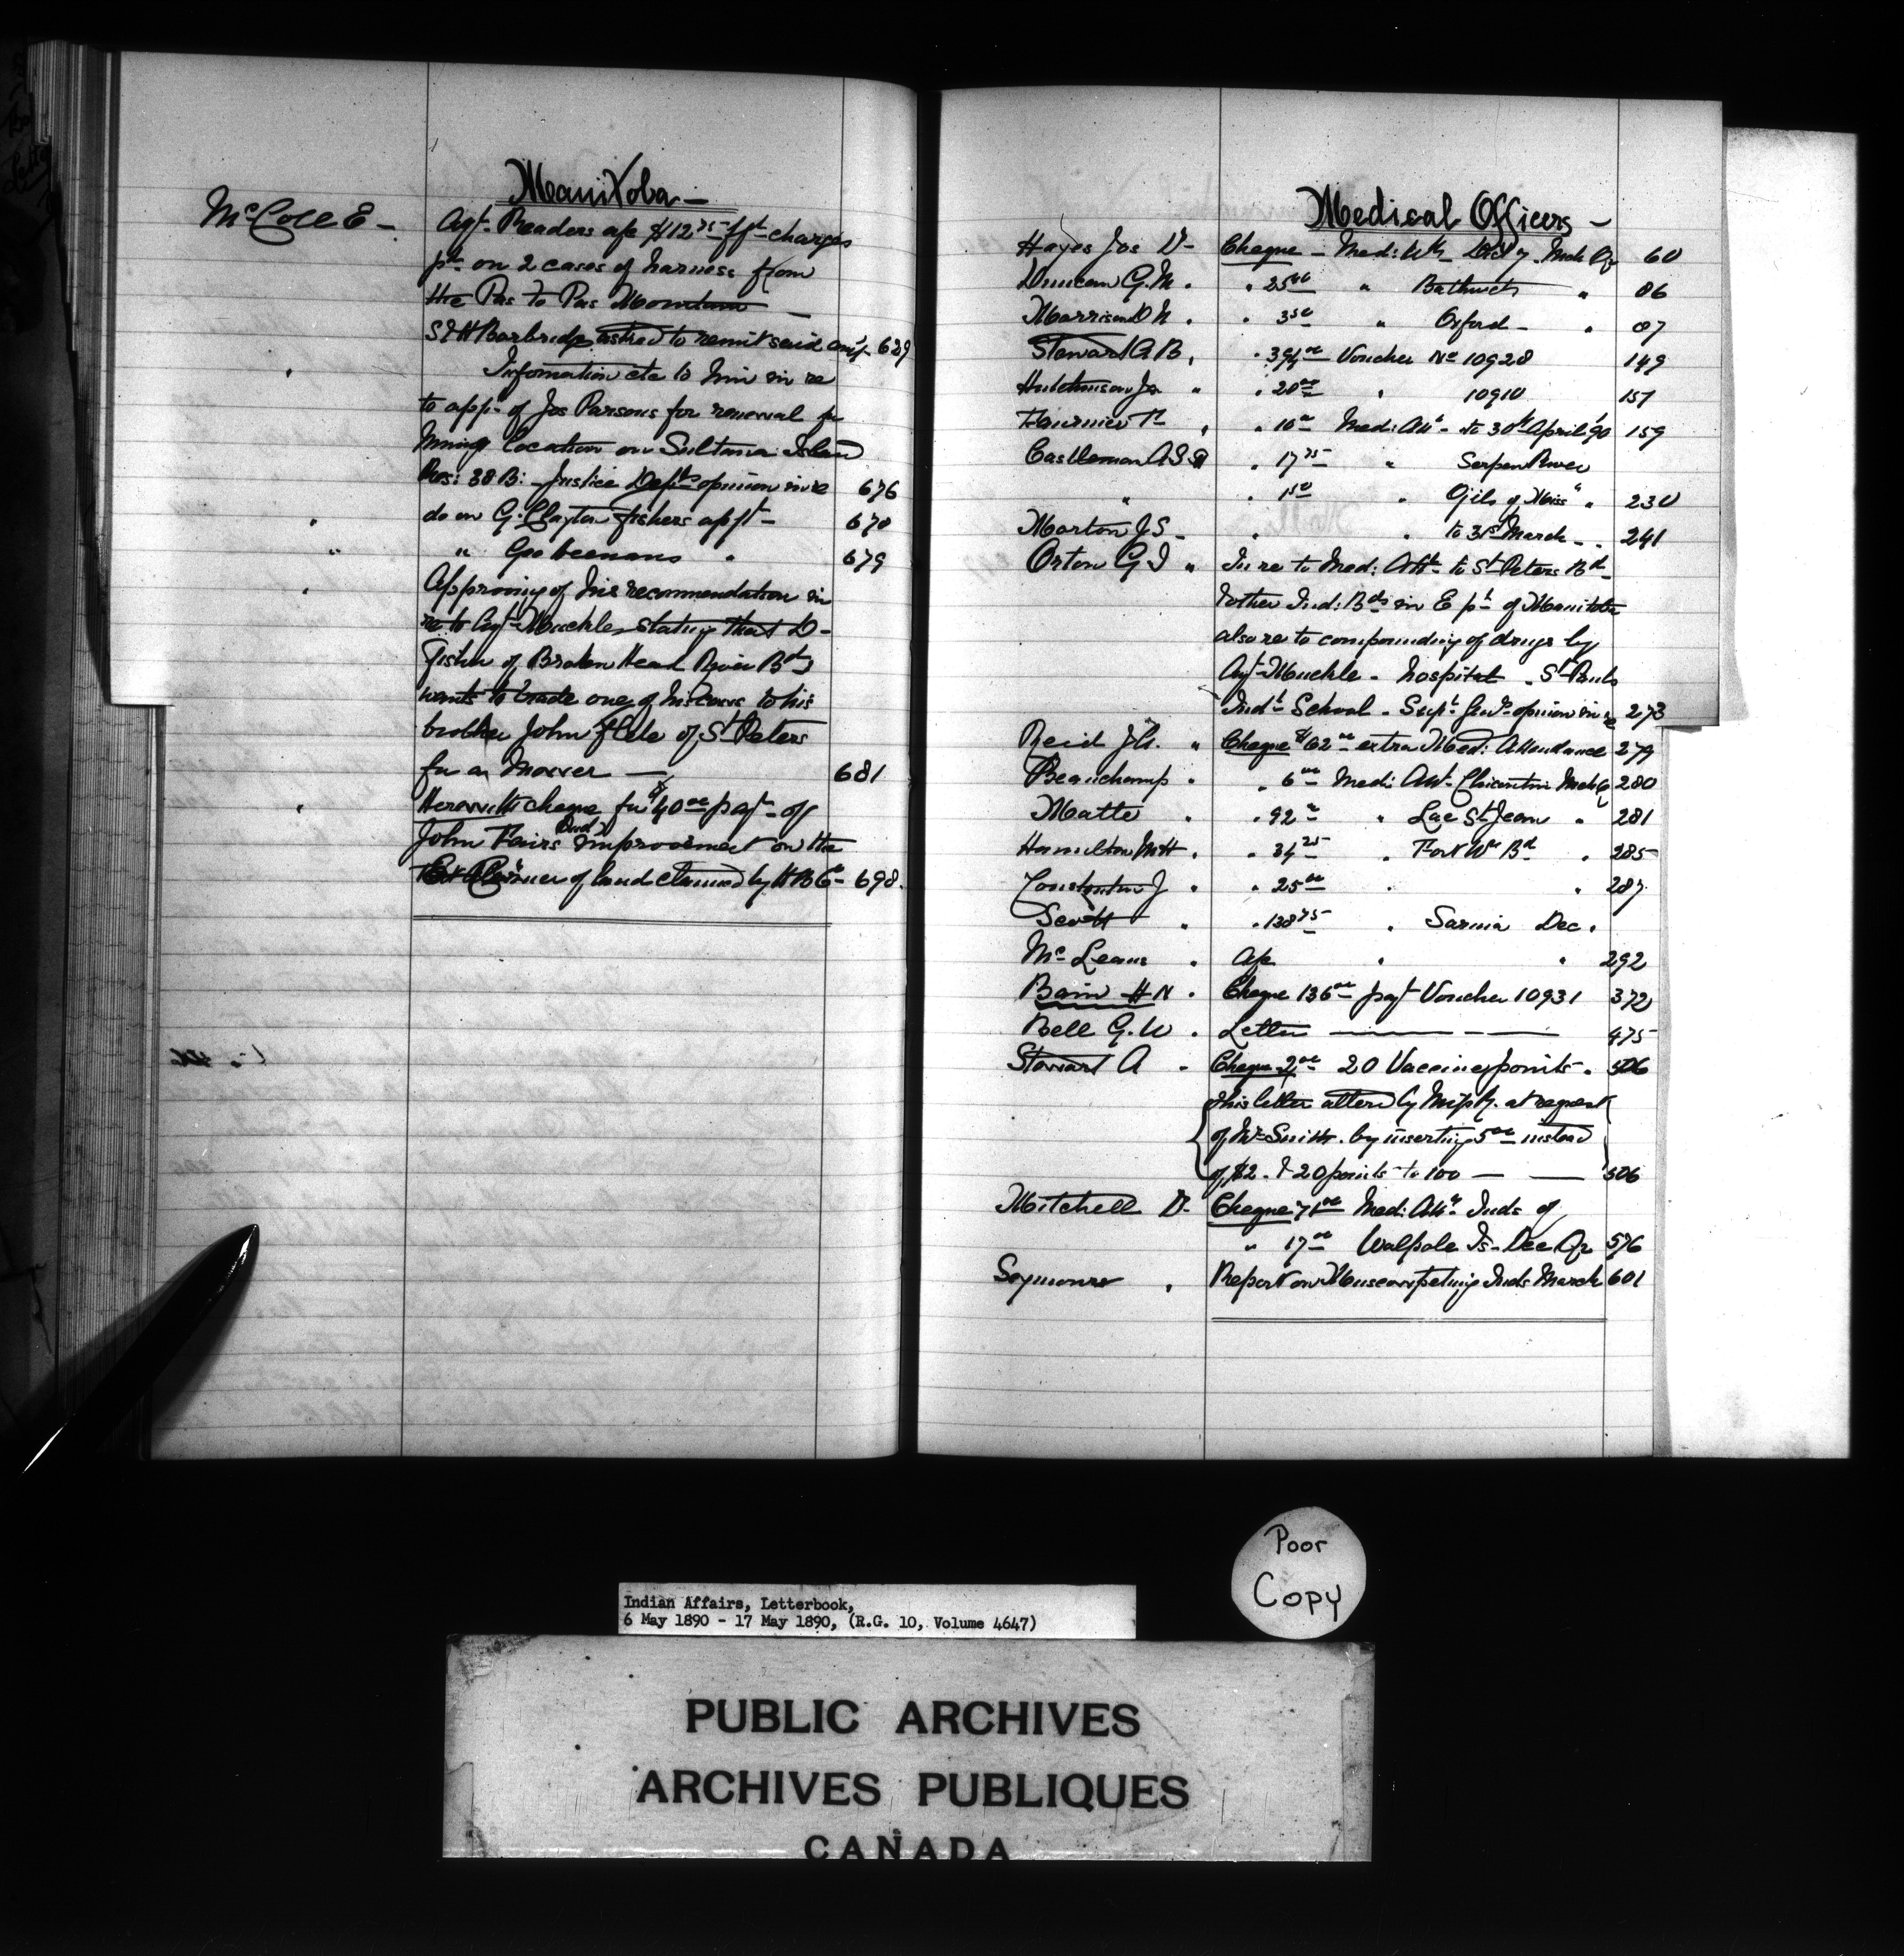 Manitoba —
McColl E - Agt. Readers a/c $12.75 fgt charges
pd on 2 cases of harness from
the Pas to Pas Mountain —
S & H Borbridge asked to remit said amt. 629
" Information etc to him in re
to appn of Jos Parsons for renewal for
Mining location on Sultana Island
Res: 38 B: - Justice Depts opinion in re 676
" do on G. Clayton fishers appt - 678
" " Geo " 679
" Approving of his recommendation in
re to Agt. Muckle stating that D -
Fisher of Broken Head River Bd
wants to trade one of his cows to his
brother John of St Peters
for a Mower — 681
" Herewith cheque for $40.00 payt of
John Fairs improvement on the
Corner of land claimed by H B Co - 698.
Medical Officers -
Hayes Jos D - Cheque - Med: Mch Qr 60
Duncan G. M. " 25.00 " Bathurst " 86
Morrison D N. " 3.50 " Oxford - " 87
Stewart G B. " 394.00 Voucher No 10928 149
Hutchinson Jas " " 20.00 " 10910 157
Fournier " 10.00 Medi: Att - to 30th April 90 159
Castleman A " 17.75 " Serpen River
" " 1.50 " Ojib of Miss " 230
Morton J S - " " to 31st March - 241
Orton G J " In re to Med: Att to St Peters Bd -
& other Ind: Bds in E pt of Manitoba
also re to compounding of drugs by
Agt Muckle - hospital - St Pauls
Indl School - Supt Genls opinion in re 273
Reid J " Cheque $62.00 extra Med: Attendance 279
Beauchamp " " 6.00 Medi: Att. Chicoutimi Mch Q 280
Matte " " 92.00 " Lac St Jean " 281
Hamilton " " 34.25 " Fort Wm Bd " 285
Constantin J " " 25.00 " " 287
Scott " " 138.75 " Sarnia Dec "
McLeans " a/c " " 292
Bain H N " Cheque 136.00 payt Voucher 10931 372
Bell G. W " Letter — 475
Stewart A " Cheque 2.00 20 Vaccine points " 506
this letter altered by at request
of Mr Smith. by inserting 5.00 instead
of $2. & 20 points to 100 — 506
Mitchell D - Cheque 71.00 Medi: Att. Inds of
" 17.00 Walpole Is - Dec Qr 576
Seymour " Report on Muscowpetung Inds March 601
Poor
Copy
Indian Affairs, Letterbook,
6 May 1890 - 17 May 1890, (R.G. 10, Volume 4647)
PUBLIC ARCHIVES
ARCHIVES PUBLIQUES
CANADA